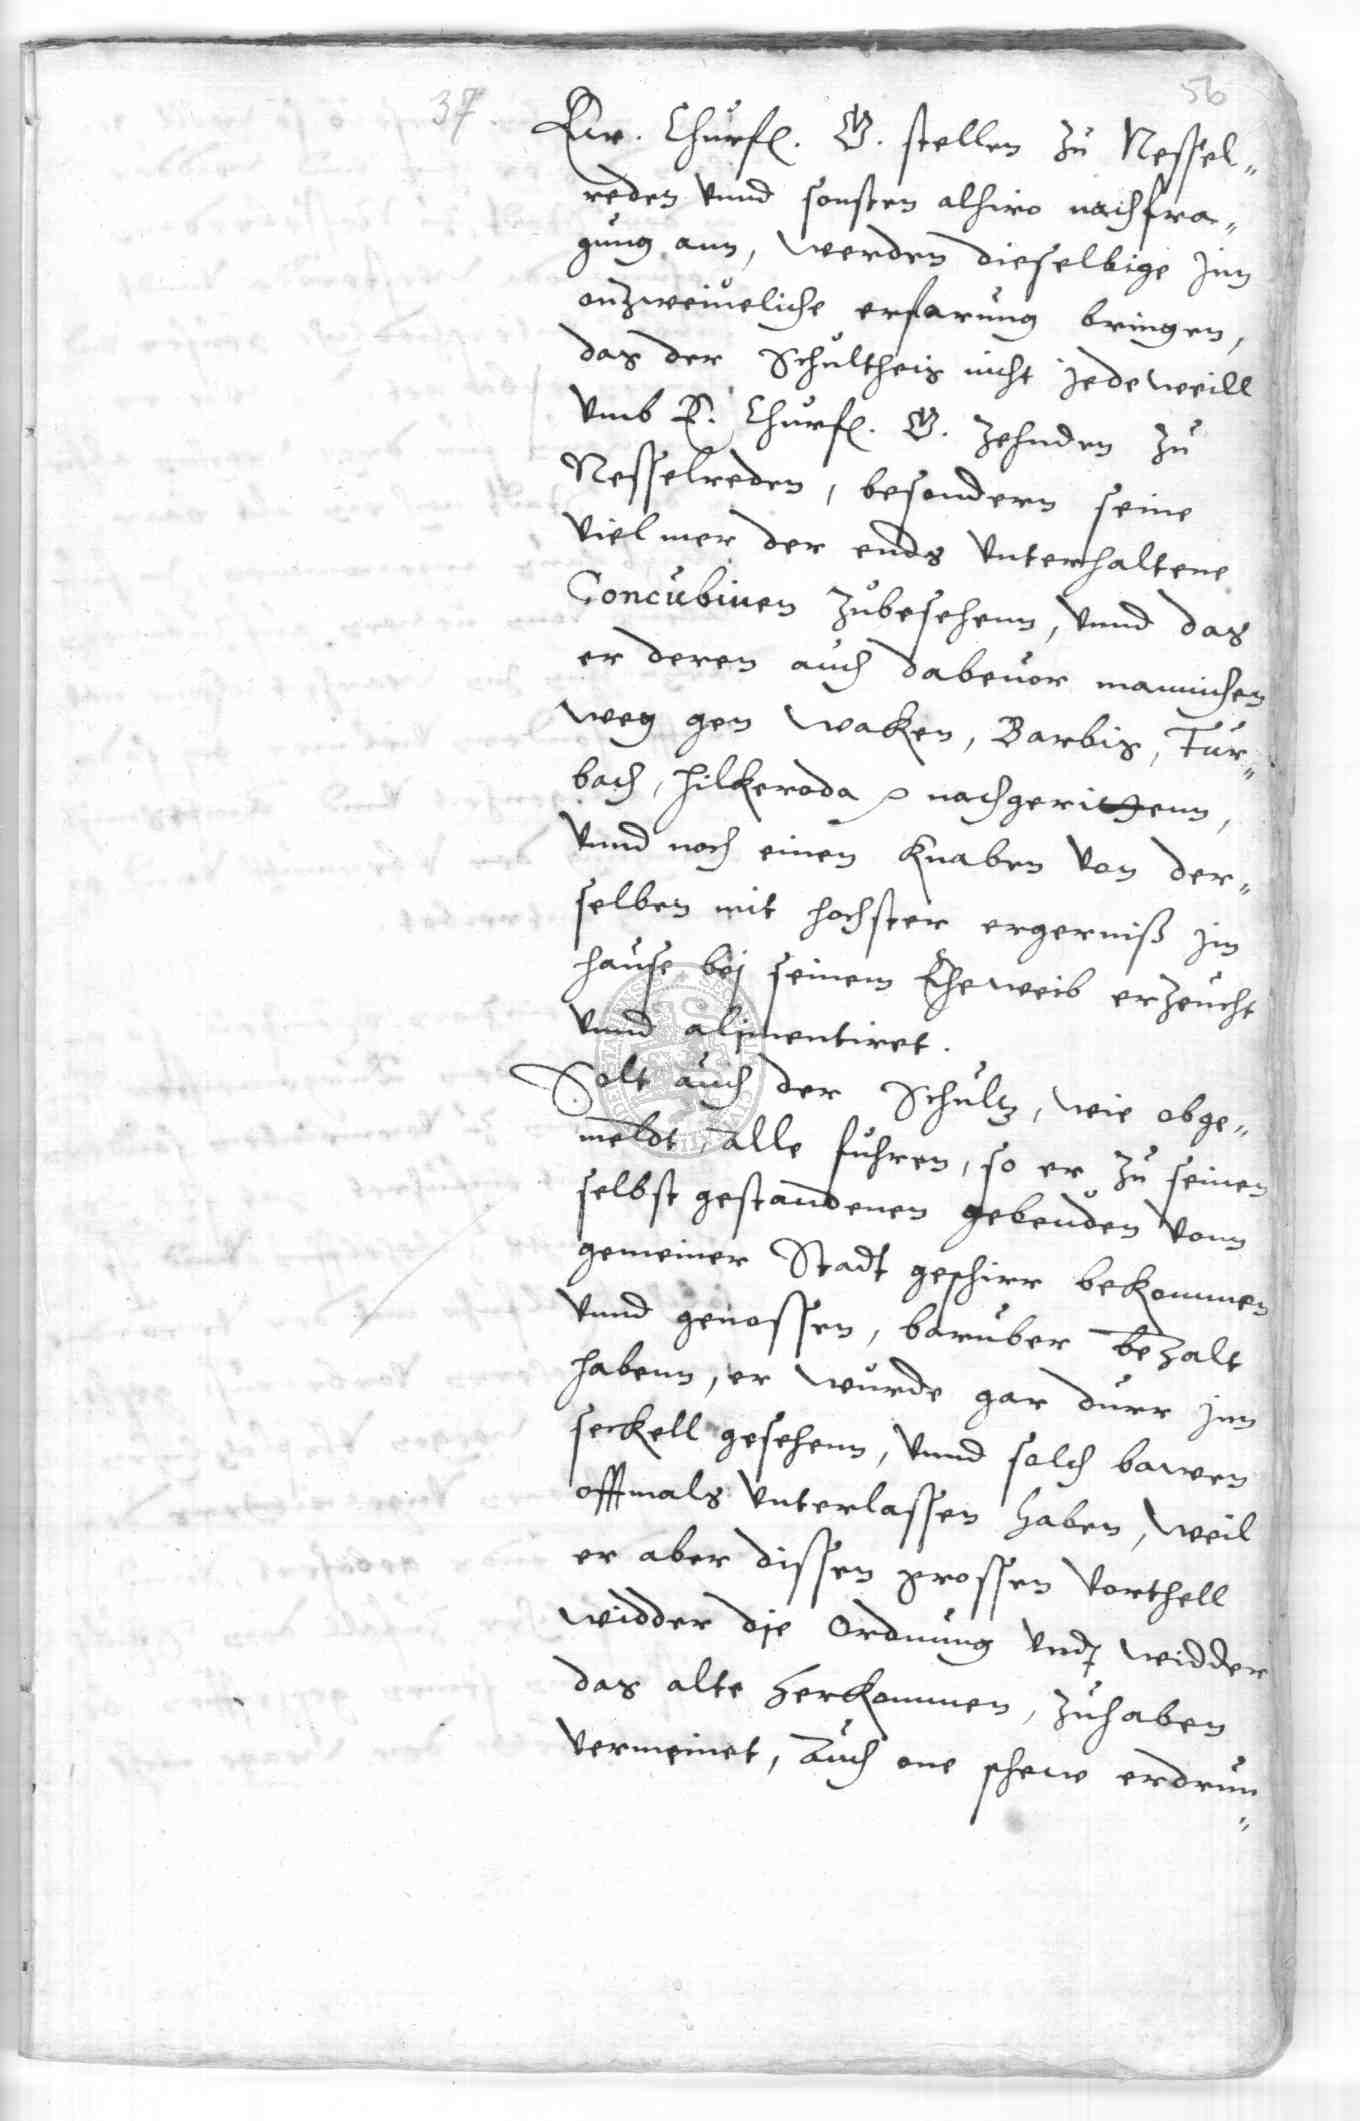 37
56
Ew. Churfl. G. stellen zu Nessel„
reden vnnd sonsten alhiro nachfra„
gung ann, werden dieselbige jnn
onzweiueliche erfarung bringen,
das der Schultheis nicht jedeweill
vmb E. Churfl. G. Zehnden zu
Nesselreden, besondern seine
viel mer der ends vnterhaltene
Concubinen zubesehenn, vnnd das
er deren auch dabeuor mannichen
weg gen Waken, Barbis, Tur„
bach, Hilkeroda nachgerittenn,
vnnd noch einen Knaben von der„
selben mit hochster ergerniß jm
hause bej seinem Eheweib erzeucht
vnnd alimentiret.
Solt auch der Schultz, wie obge„
meldt, alle fuhren, so er zu seinen
selbst gestandenen gebeuden vonn
gemeiner Stadt geschirr bekommen
vnnd genossen, baruber bezalt
habenn, er wurde gar durr jnn
seckell gesehenn, vnnd solch bawen
offtmals vnterlassen haben, weil
er aber dissen grossen vorthell
widder die Ordnung vnd widder
das alte herkommen, zuhaben
vermeinet, Auch one schew erdrun„